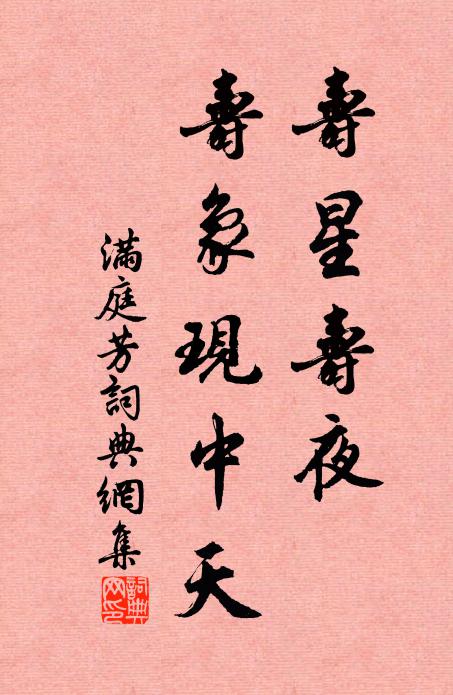 壽星壽夜
壽象現中天
滿庭芳詞典網集
詞典網印